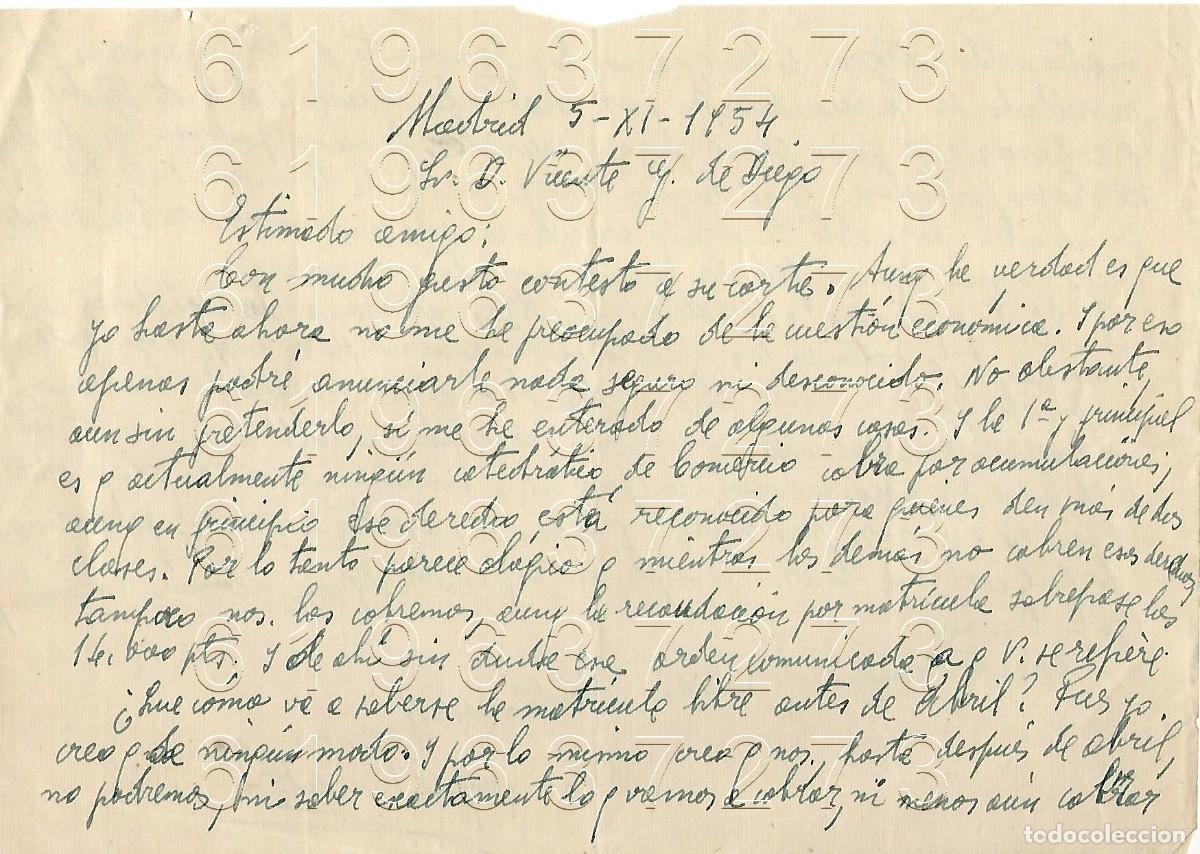 619637273
Madrid 5-XI-1954
619637273
Sr. D. Vicente G. de Diego
619637273
Estimado amigo:
Con mucho gusto contesto a su carta. Aunq la verdad es que
619637273
yo hasta ahora no me he preocupado de la cuestión económica. Y por eso
apenas podré anunciarle nada seguro ni desconocido. No obstante,
619637273
aun sin pretenderlo, sí me he enterado de algunas cosas. Y la 1ª y principal
es q actualmente ningún catedrático de Comercio cobra por acumulaciones,
619637273
aunq en principio ese derecho está reconocido para quienes den más de dos
clases. Por lo tanto parece lógico q mientras los demás no cobren esos derechos
619637273
tampoco nos. los cobremos, aunq la recaudación por matrícula sobrepase las
14.000 pts. Y de ahí sin duda esa orden comunicada a q V. se refiere.
619637273
¿Que cómo va a saberse la matrícula libre antes de Abril? Pues yo
creo q de ningún modo. Y por lo mismo creo q nos., hasta después de abril,
619637273
no podremos, ni saber exactamente lo q vamos a cobrar, ni menos aún cobrar
todocoleccion